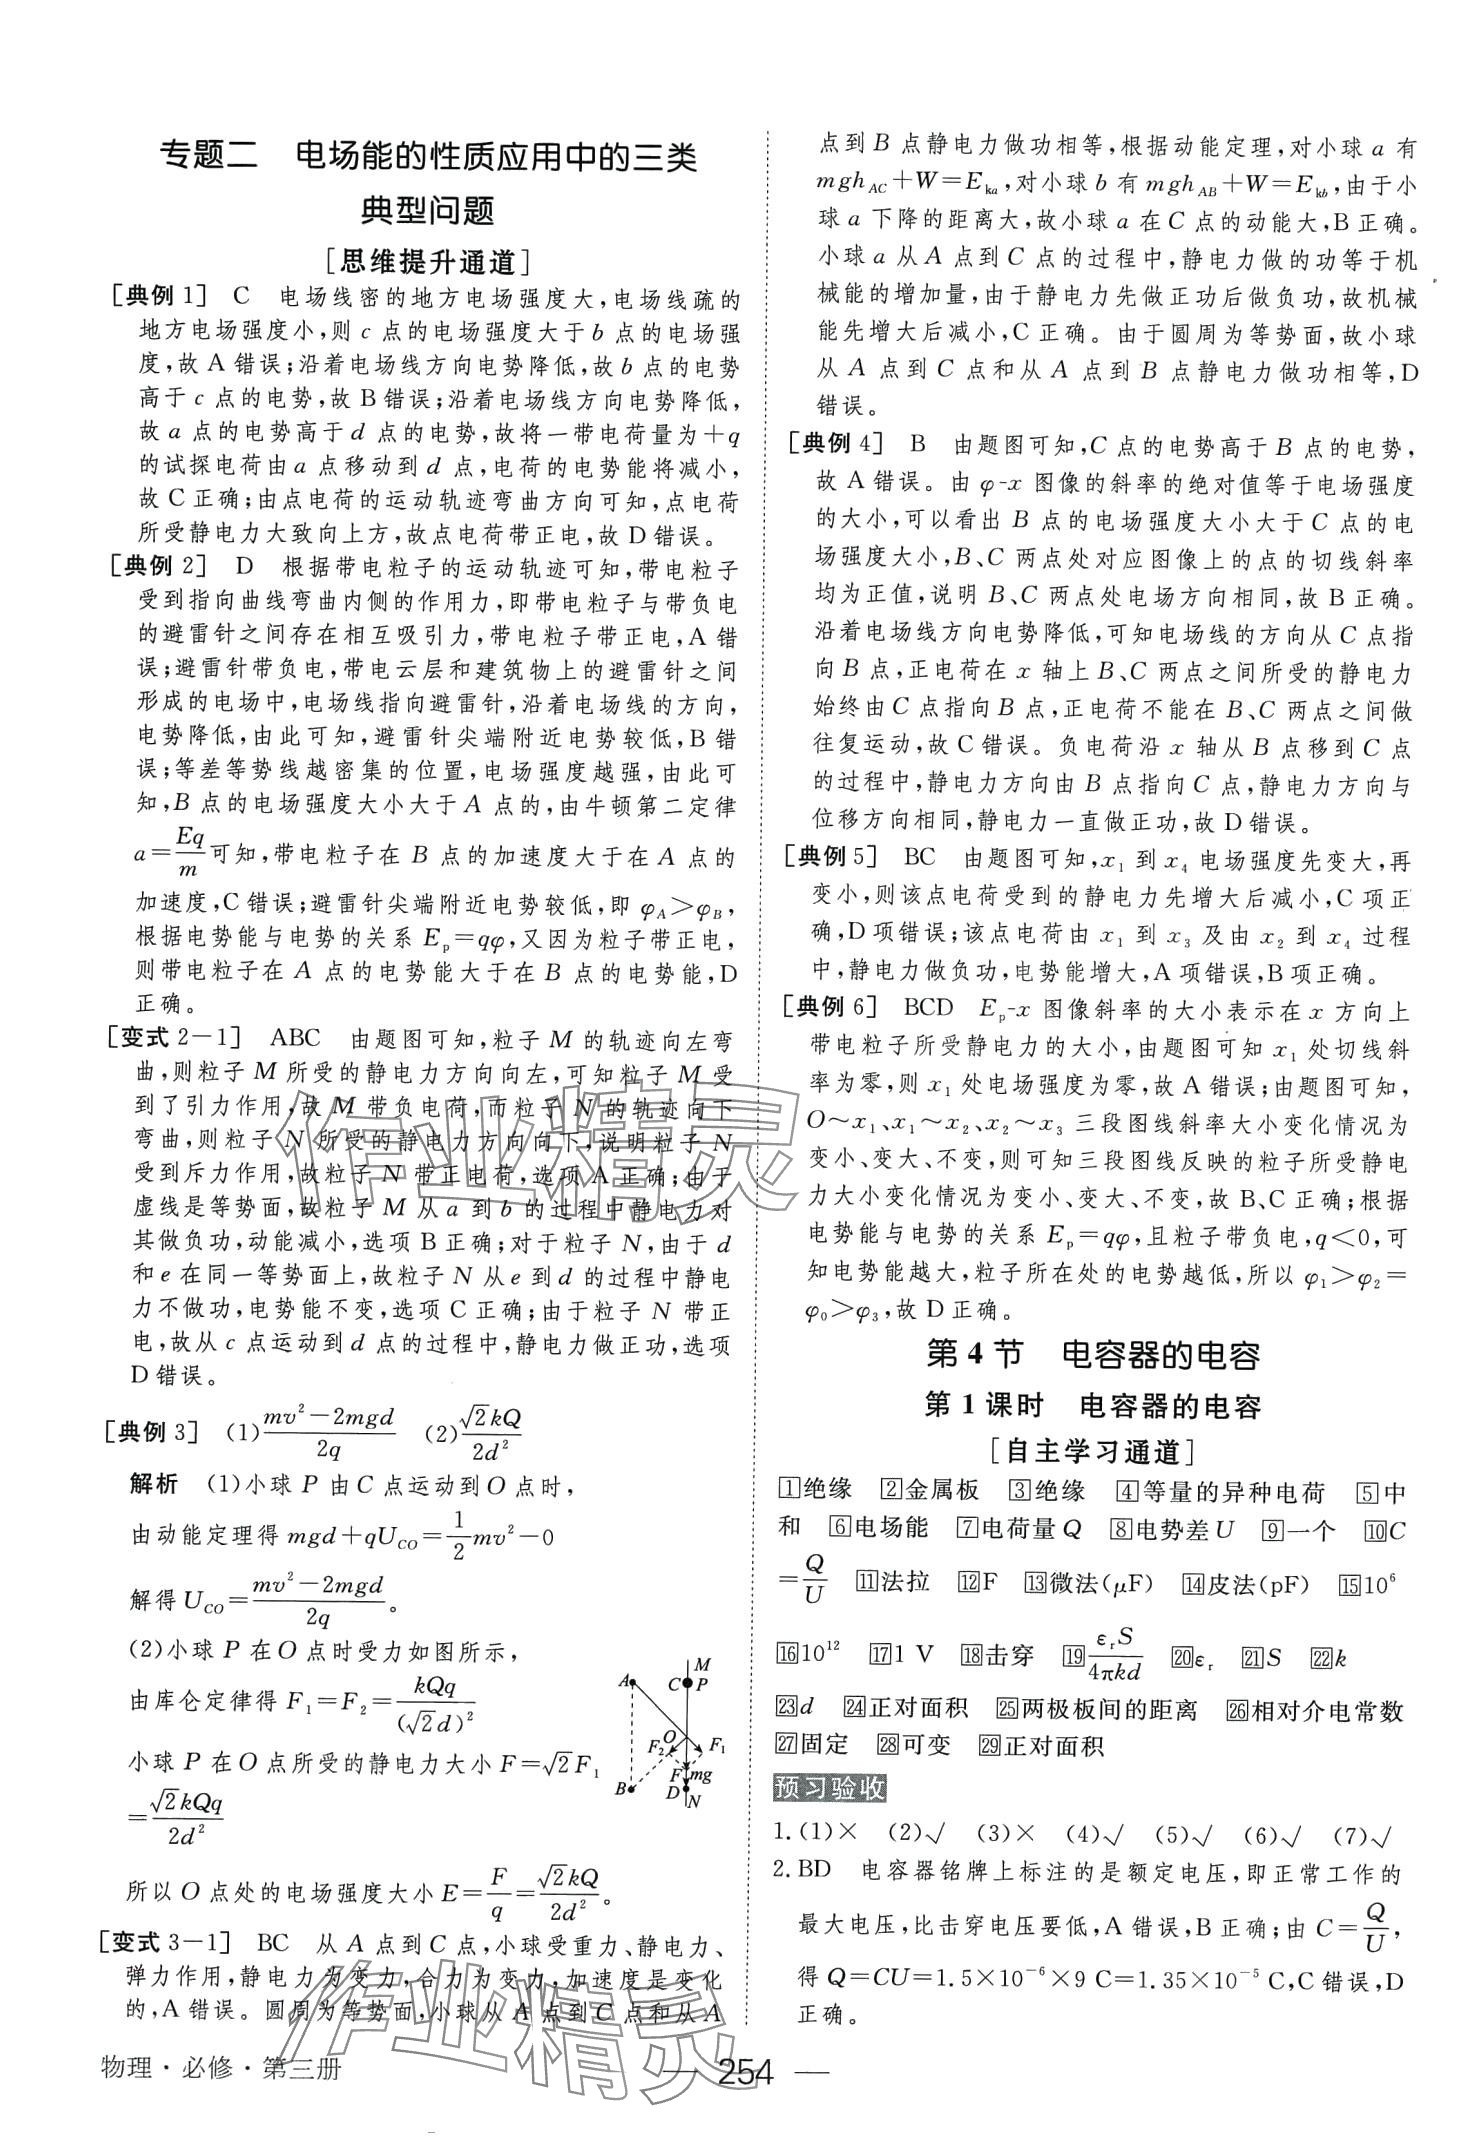 专题二　电场能的性质应用中的三类
典型问题
[思维提升通道]
[典例 1]　C　电场线密的地方电场强度大,电场线疏的
地方电场强度小,则 c 点的电场强度大于 b 点的电场强
度,故 A 错误;沿着电场线方向电势降低,故 b 点的电势
高于 c 点的电势,故 B 错误;沿着电场线方向电势降低,
故 a 点的电势高于 d 点的电势,故将一带电荷量为+q
的试探电荷由 a 点移动到 d 点,电荷的电势能将减小,
故 C 正确;由点电荷的运动轨迹弯曲方向可知,点电荷
所受静电力大致向上方,故点电荷带正电,故 D 错误。
[典例 2]　D　根据带电粒子的运动轨迹可知,带电粒子
受到指向曲线弯曲内侧的作用力,即带电粒子与带负电
的避雷针之间存在相互吸引力,带电粒子带正电,A 错
误;避雷针带负电,带电云层和建筑物上的避雷针之间
形成的电场中,电场线指向避雷针,沿着电场线的方向,
电势降低,由此可知,避雷针尖端附近电势较低,B 错
误;等差等势线越密集的位置,电场强度越强,由此可
知,B 点的电场强度大小大于 A 点的,由牛顿第二定律
a=Eq/m可知,带电粒子在 B 点的加速度大于在 A 点的
加速度,C 错误;避雷针尖端附近电势较低,即 φA>φB,
根据电势能与电势的关系 Ep=qφ,又因为粒子带正电,
则带电粒子在 A 点的电势能大于在 B 点的电势能,D
正确。
[变式 2-1]　ABC　由题图可知,粒子 M 的轨迹向左弯
曲,则粒子 M 所受的静电力方向向左,可知粒子 M 受
到了引力作用,故 M 带负电荷,而粒子 N 的轨迹向下
弯曲,则粒子 N 所受的静电力方向向下,说明粒子 N
受到斥力作用,故粒子 N 带正电荷,选项 A 正确;由于
虚线是等势面,故粒子 M 从 a 到 b 的过程中静电力对
其做负功,动能减小,选项 B 正确;对于粒子 N,由于 d
和 e 在同一等势面上,故粒子 N 从 e 到 d 的过程中静电
力不做功,电势能不变,选项 C 正确;由于粒子 N 带正
电,故从 c 点运动到 d 点的过程中,静电力做正功,选项
D 错误。
[典例 3]　(1)(mv²-2mgd)/2q　(2)√2kQ/2d²
解析　(1)小球 P 由 C 点运动到 O 点时,
由动能定理得 mgd+qUCO=1/2mv²-0
解得 UCO=(mv²-2mgd)/2q。
(2)小球 P 在 O 点时受力如图所示,
由库仑定律得 F₁=F₂=kQq/(√2d)²
小球 P 在 O 点所受的静电力大小 F=√2F₁
=√2kQq/2d²
A C P M O F₂ F₁ F mg B D N
所以 O 点处的电场强度大小 E=F/q=√2kQ/2d²。
[变式 3-1]　BC　从 A 点到 C 点,小球受重力、静电力、
弹力作用,静电力为变力,合力为变力,加速度是变化
的,A 错误。圆周为等势面,小球从 A 点到 C 点和从 A
点到 B 点静电力做功相等,根据动能定理,对小球 a 有
mghAC+W=Eka,对小球 b 有 mghAB+W=Ekb,由于小
球 a 下降的距离大,故小球 a 在 C 点的动能大,B 正确。
小球 a 从 A 点到 C 点的过程中,静电力做的功等于机
械能的增加量,由于静电力先做正功后做负功,故机械
能先增大后减小,C 正确。由于圆周为等势面,故小球
从 A 点到 C 点和从 A 点到 B 点静电力做功相等,D
错误。
[典例 4]　B　由题图可知,C 点的电势高于 B 点的电势,
故 A 错误。由 φ-x 图像的斜率的绝对值等于电场强度
的大小,可以看出 B 点的电场强度大小大于 C 点的电
场强度大小,B、C 两点处对应图像上的点的切线斜率
均为正值,说明 B、C 两点处电场方向相同,故 B 正确。
沿着电场线方向电势降低,可知电场线的方向从 C 点指
向 B 点,正电荷在 x 轴上 B、C 两点之间所受的静电力
始终由 C 点指向 B 点,正电荷不能在 B、C 两点之间做
往复运动,故 C 错误。负电荷沿 x 轴从 B 点移到 C 点
的过程中,静电力方向由 B 点指向 C 点,静电力方向与
位移方向相同,静电力一直做正功,故 D 错误。
[典例 5]　BC　由题图可知,x₁ 到 x₄ 电场强度先变大,再
变小,则该点电荷受到的静电力先增大后减小,C 项正
确,D 项错误;该点电荷由 x₁ 到 x₃ 及由 x₂ 到 x₄ 过程
中,静电力做负功,电势能增大,A 项错误,B 项正确。
[典例 6]　BCD　Ep-x 图像斜率的大小表示在 x 方向上
带电粒子所受静电力的大小,由题图可知 x₁ 处切线斜
率为零,则 x₁ 处电场强度为零,故 A 错误;由题图可知,
O～x₁、x₁～x₂、x₂～x₃ 三段图线斜率大小变化情况为
变小、变大、不变,则可知三段图线反映的粒子所受静电
力大小变化情况为变小、变大、不变,故 B、C 正确;根据
电势能与电势的关系 Ep=qφ,且粒子带负电,q<0,可
知电势能越大,粒子所在处的电势越低,所以 φ₁>φ₂=
φ₀>φ₃,故 D 正确。
第 4 节　电容器的电容
第 1 课时　电容器的电容
[自主学习通道]
1绝缘　2金属板　3绝缘　4等量的异种电荷　5中
和　6电场能　7电荷量 Q　8电势差 U　9一个　10C
=Q/U　11法拉　12F　13微法(μF)　14皮法(pF)　15 10⁶
16 10¹²　17 1 V　18击穿　19 εrS/4πkd　20 εr　21 S　22 k
23 d　24正对面积　25两极板间的距离　26相对介电常数
27固定　28可变　29正对面积
预习验收
1.(1)×　(2)√　(3)×　(4)√　(5)√　(6)√　(7)√
2.BD　电容器铭牌上标注的是额定电压,即正常工作的
最大电压,比击穿电压要低,A 错误,B 正确;由 C=Q/U,
得 Q=CU=1.5×10⁻⁶×9 C=1.35×10⁻⁵ C,C 错误,D
正确。
物理·必修·第三册
— 254 —
作业精灵
作业精灵